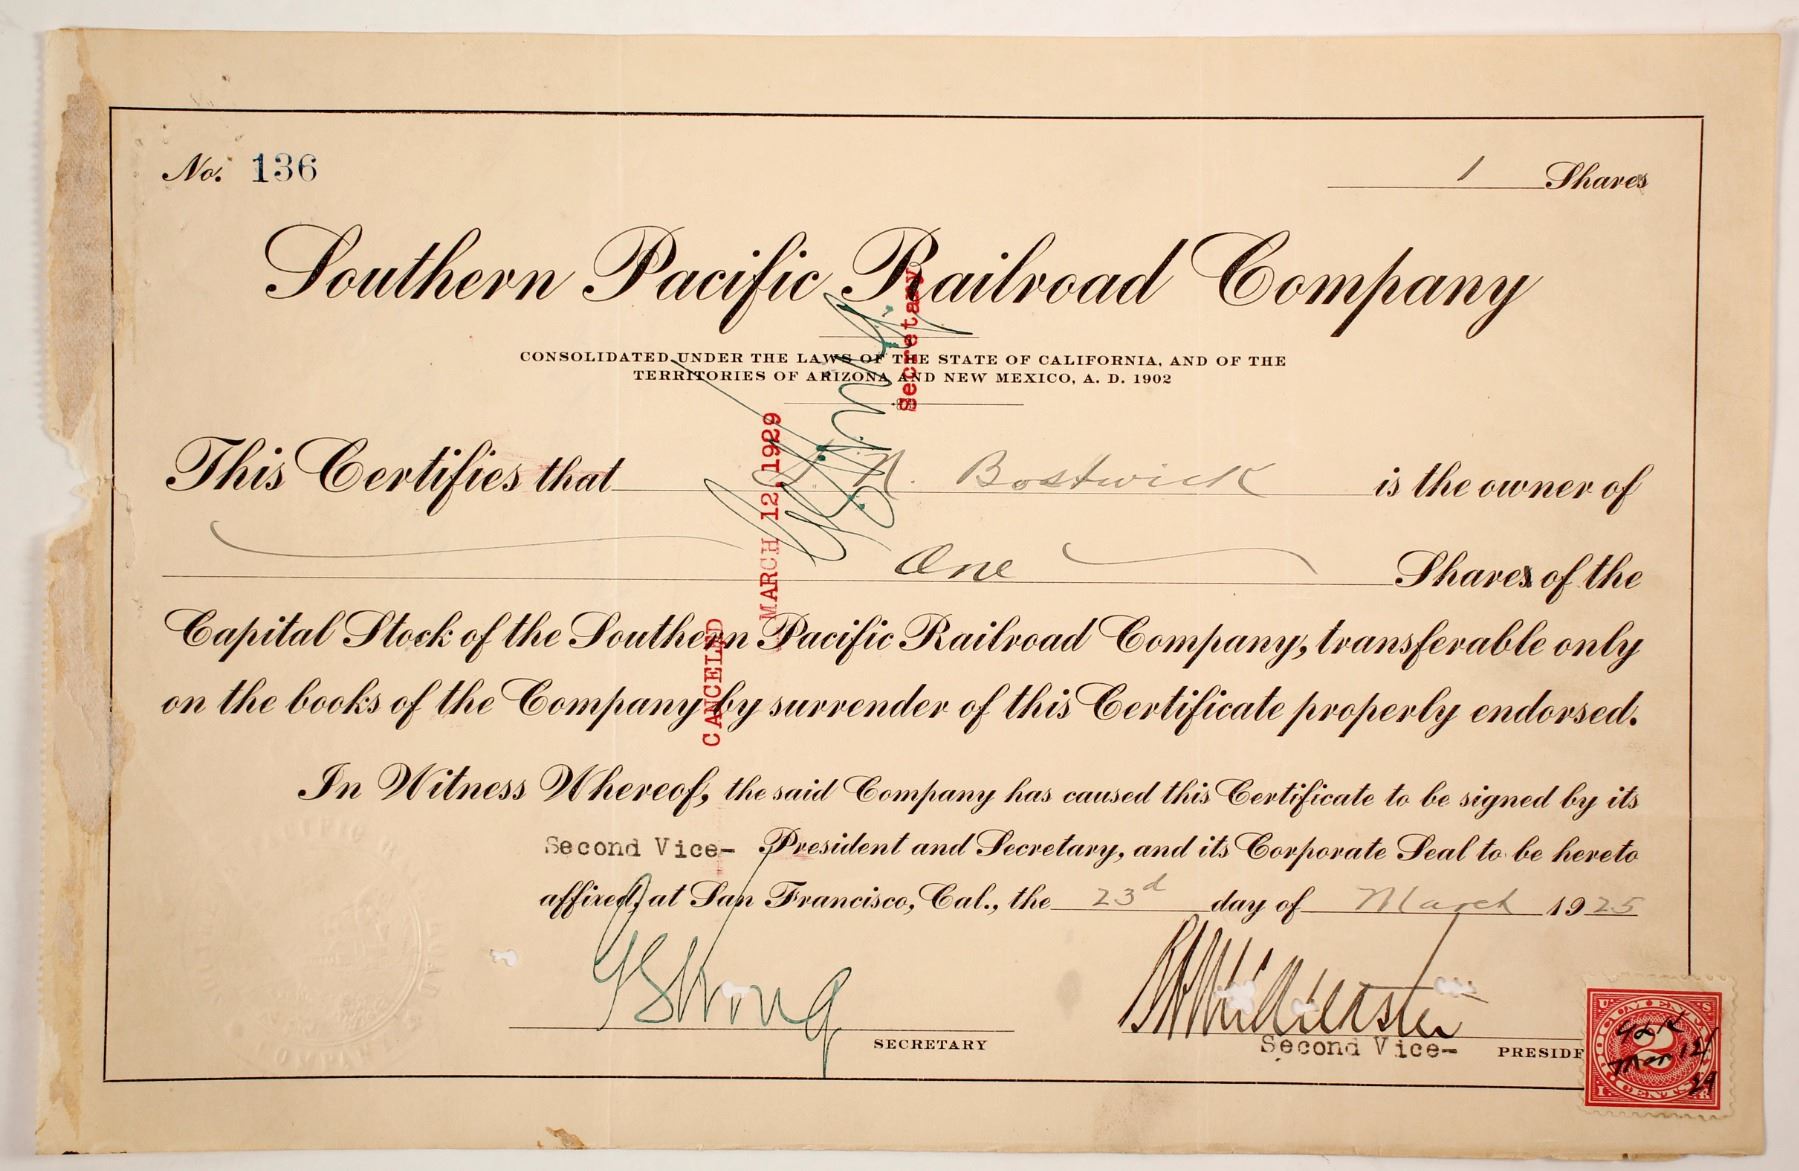 No. 136
1 Shares
Southern Pacific Railroad Company
CONSOLIDATED UNDER THE LAWS OF THE STATE OF CALIFORNIA, AND OF THE
TERRITORIES OF ARIZONA AND NEW MEXICO, A. D. 1902
This Certifies that N. Bostwick is the owner of
One Shares of the
Capital Stock of the Southern Pacific Railroad Company, transferable only
on the books of the Company by surrender of this Certificate properly endorsed.
CANCELED
MARCH 12, 1929
Secretary
In Witness Whereof, the said Company has caused this Certificate to be signed by its
Second Vice- President and Secretary, and its Corporate Seal to be hereto
affixed, at San Francisco, Cal., the 23d day of March 1925
G L King
SECRETARY
Second Vice- PRESIDE
U.S. DOCUMENTARY
2
CENTS
I. R.
GLK
Mar 12/
29